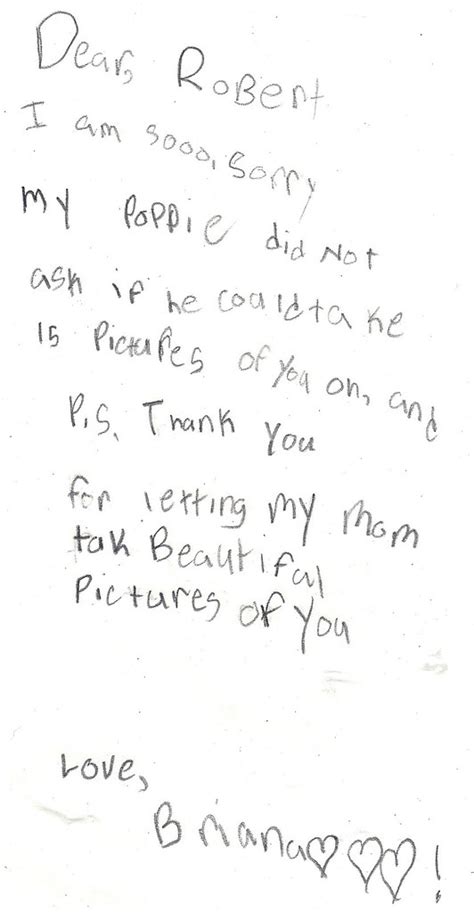 Dear, Robert
I am sooo, sorry
my Poppie did Not
ask if he could take
15 Pictures of you on, and
P.S. Thank you
for letting my mom
tak Beautiful
Pictures of you
Love,
Briana♡♡♡!